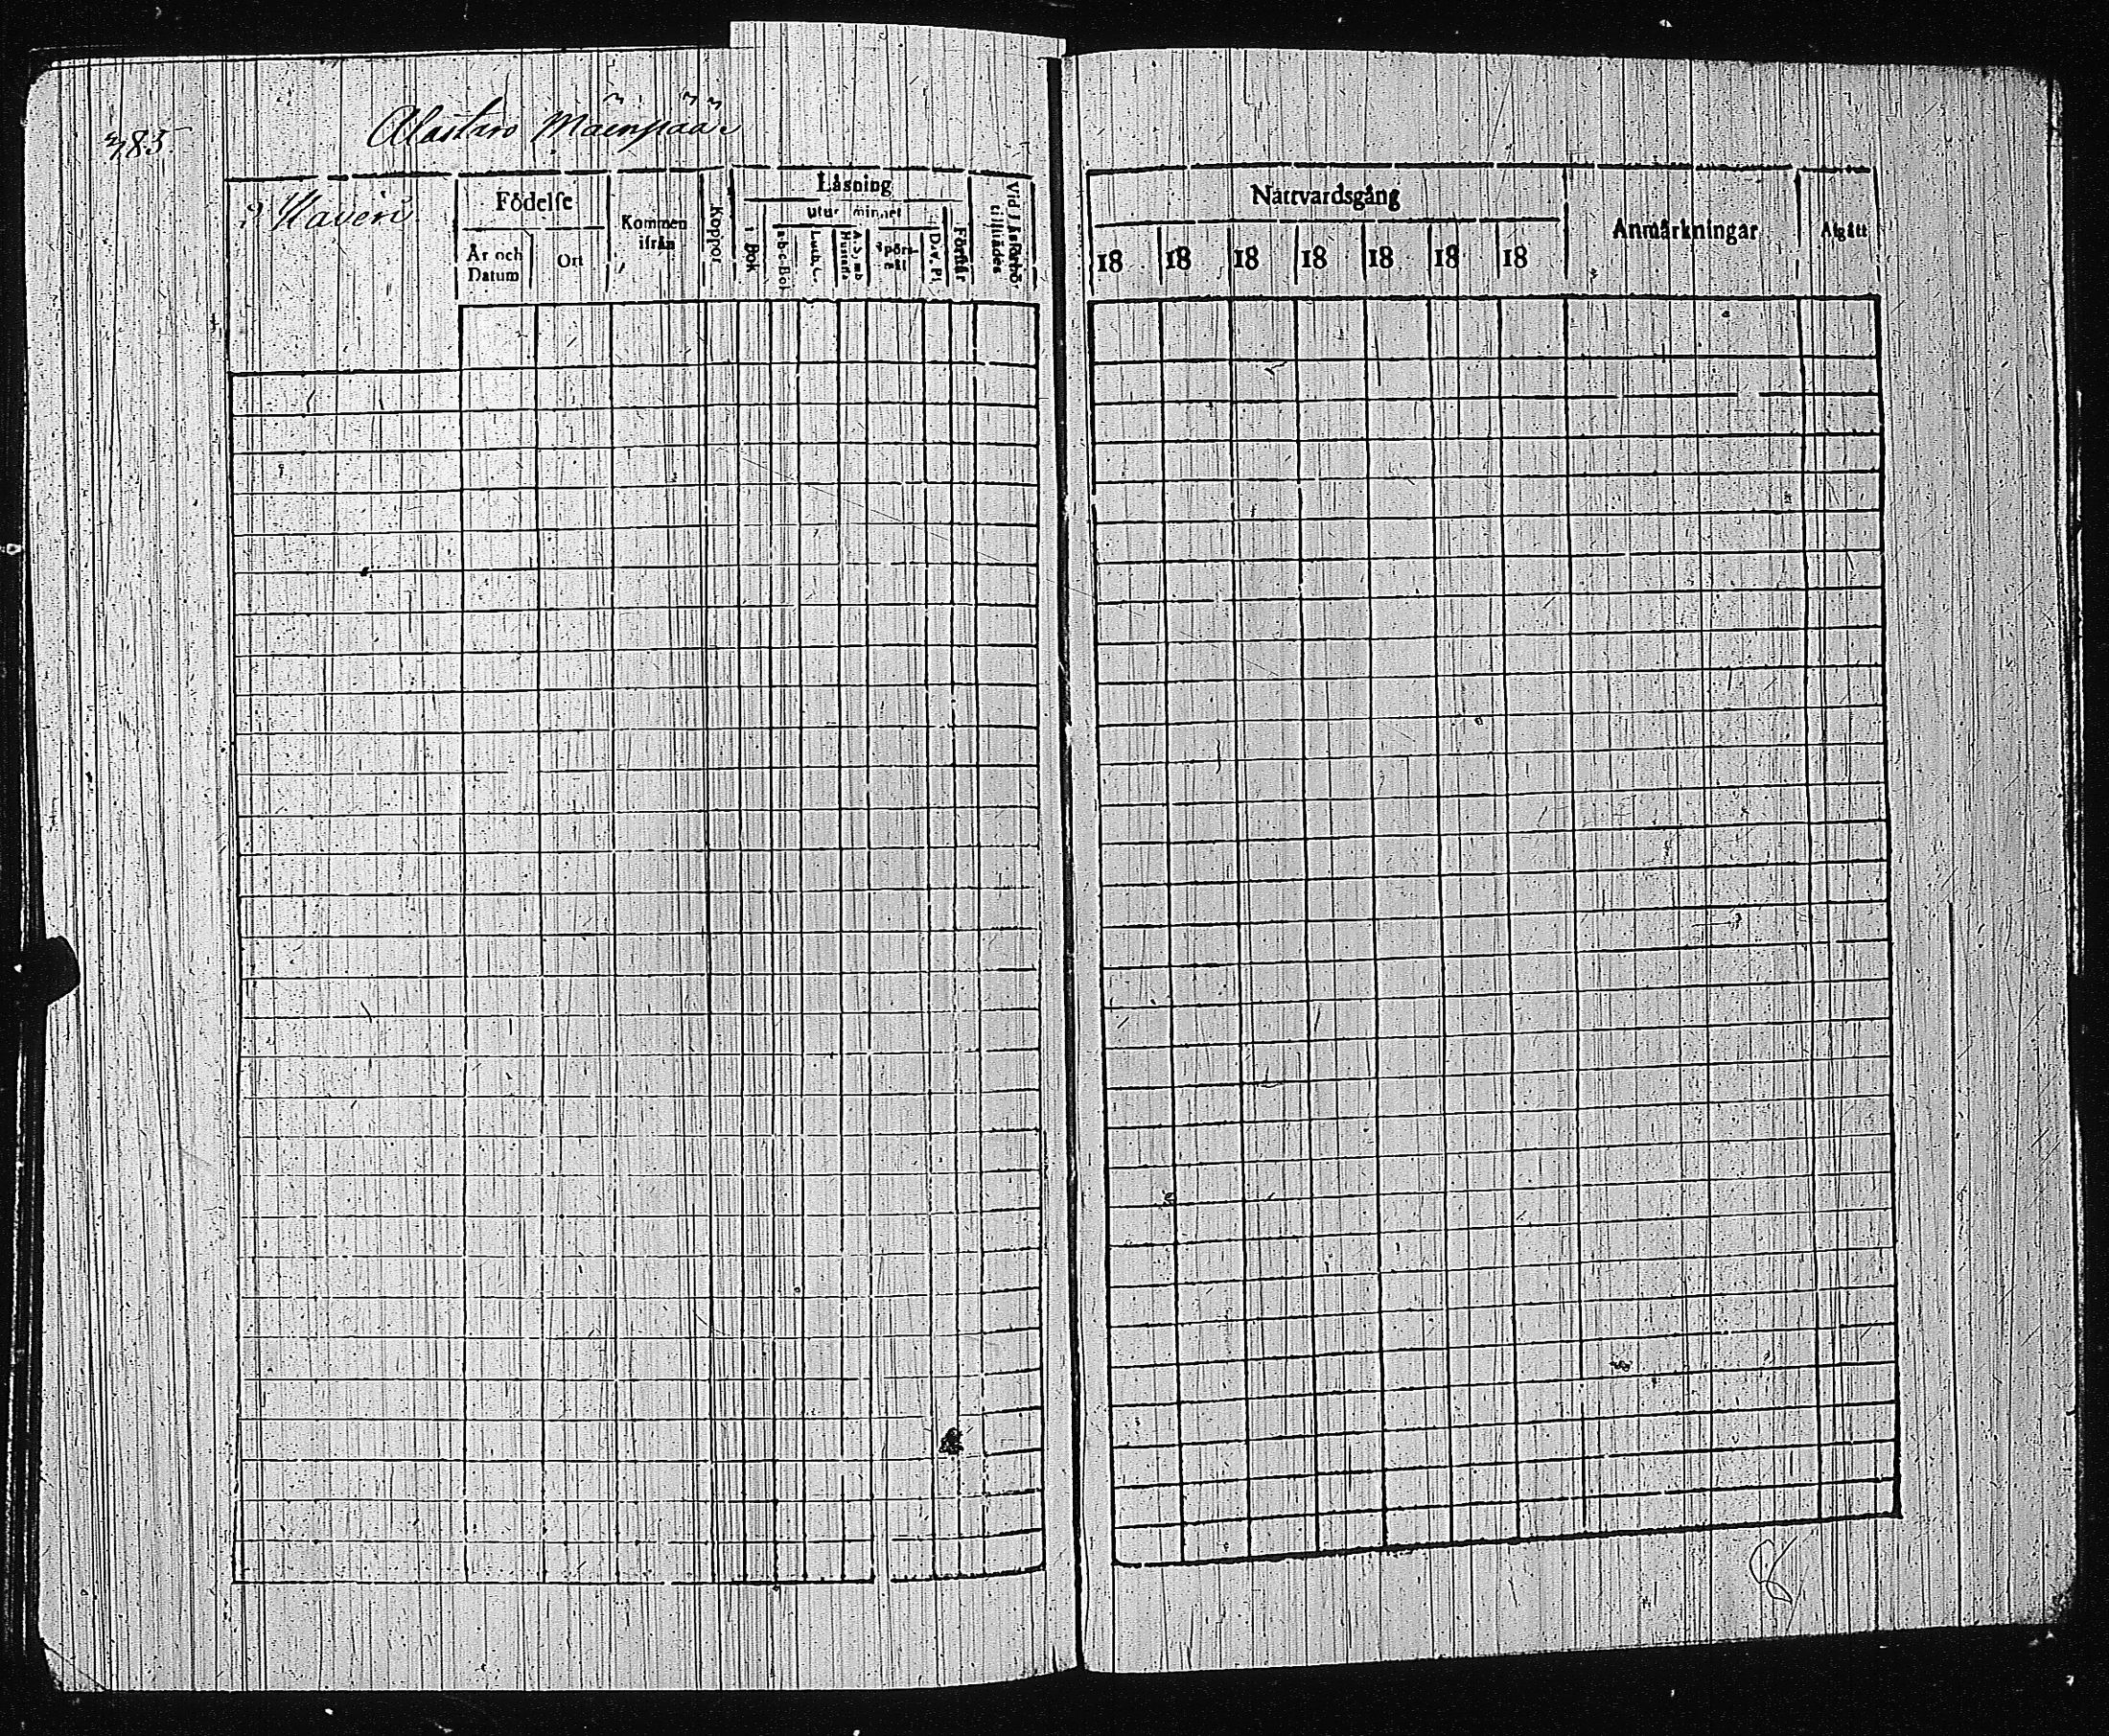 385.
Alastaro Mäenpää
Haveri
Födelse
År och Datum
Ort
Kommen ifrån
Koppor
Läsning
i Bok
utur minnet
A-b-c-Bok
Luth. C.
Hustafla
Spörsmål
D. v. Ps.
Förstår
Vid Läsförhör tillstädes
Nattvardsgång
18 18 18 18 18 18 18
Anmärkningar
Afgått